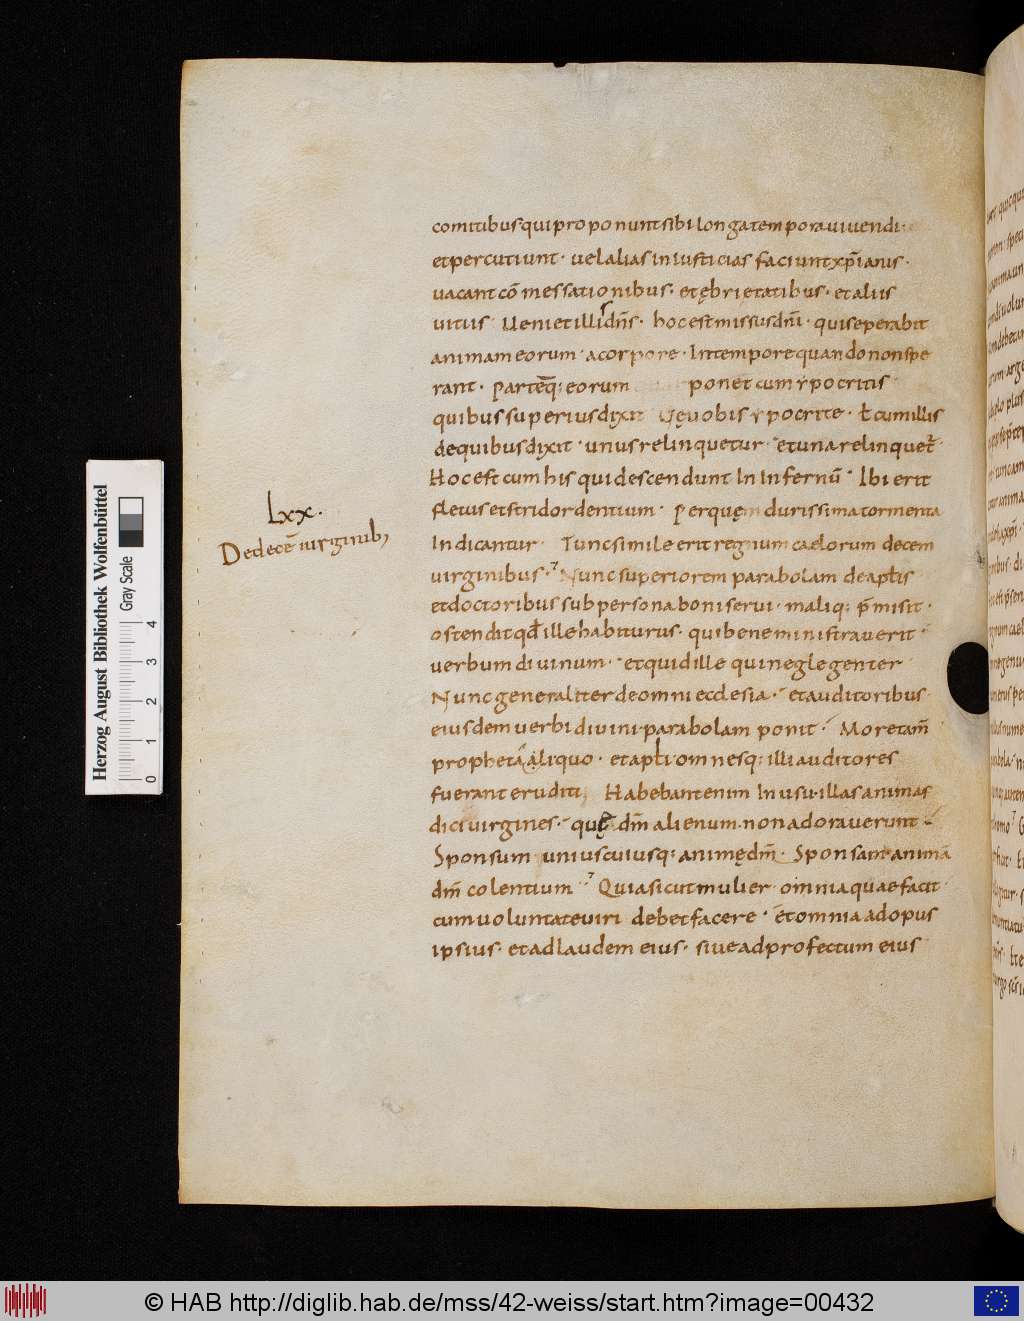 comitibus qui proponunt sibi longa tempora vivendi·
et percutiunt · uel alias iniusticias faciunt xp̄ianis·
uacant cōmessationibus· et ębrietatibus· et aliis
uitiis· Ueniet illis dn̄s· hoc est missus dn̄i· qui seperabit
animam eorum· a corpore· In tempore quando non spe
rant· Parteq̄; eorum ponet cum ypocritis
quibus superius dixit Uę uobis ypocrite· Et cum illis
de quibus dixit· unus relinquetur· et una relinquet̄·
Hoc est cum his qui descendunt In Infernū· Ibi erit
fletus et stridor dentium· Per quę durissima tormenta
Indicantur· Tunc simile erit regnum caelorum decem
uirginibus· Nunc superiorem parabolam de aptis
et doctoribus sub persona boni serui· maliq; p̄misit·
ostendit qđ ille habiturus· qui bene ministrauerit·
uerbum diuinum· et quid ille qui neglegenter
Nunc generaliter de omni ecclesia· et auditoribus·
eiusdem uerbi diuini· parabolam ponit· More tam̄
prophetā aliquo· et aptī omnesq; illi auditores
fuerant eruditi Habebant enim In usu· illas animas
dici uirgines· quę dm̄ alienum· non adorauerunt·
Sponsum uniuscuiusq; animę dm̄· Sponsam animā
dm̄ colentium· Quia sicut mulier omnia quae facit·
cum uoluntate uiri debet facere· et omnia ad opus
ipsius· et ad laudem eius· siue ad profectum eius
Lxx·
De decē uirginib;
Herzog August Bibliothek Wolfenbüttel
Gray Scale
0 1 2 3 4
© HAB http://diglib.hab.de/mss/42-weiss/start.htm?image=00432